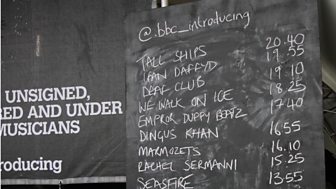 UNSIGNED,
RED AND UNDER
MUSICIANS
roducing
@.bbc_introducing
TALL SHIPS 20.40
IFAN DAFYDD 19.55
DEAF CLUB 19.10
WE WALK ON ICE 18.25
EMPEROR DUPPY BEATZ 17.40
DINGUS KHAN 16.55
MARMOZETS 16.10
RACHEL SERMANNI 15.25
SEASFIRE 13.55